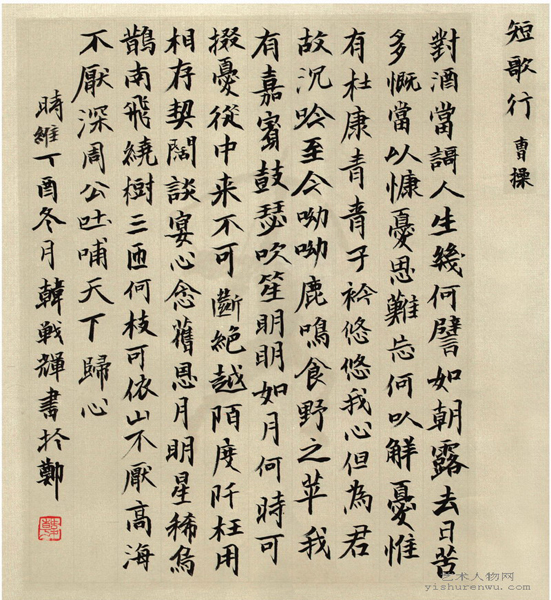 短歌行 曹操
對酒當謌人生幾何譬如朝露去日苦
多慨當以慷憂思難忘何以解憂惟
有杜康青青子衿悠悠我心但為君
故沉吟至今呦呦鹿鳴食野之苹我
有嘉賓鼓瑟吹笙明明如月何時可
掇憂從中来不可斷絕越陌度阡枉用
相存契闊談宴心念舊恩月明星稀烏
鵲南飛繞樹三匝何枝可依山不厭高海
不厭深周公吐哺天下歸心
時維丁酉冬月韓戰輝書於鄭
艺术人物网
yishurenwu.com